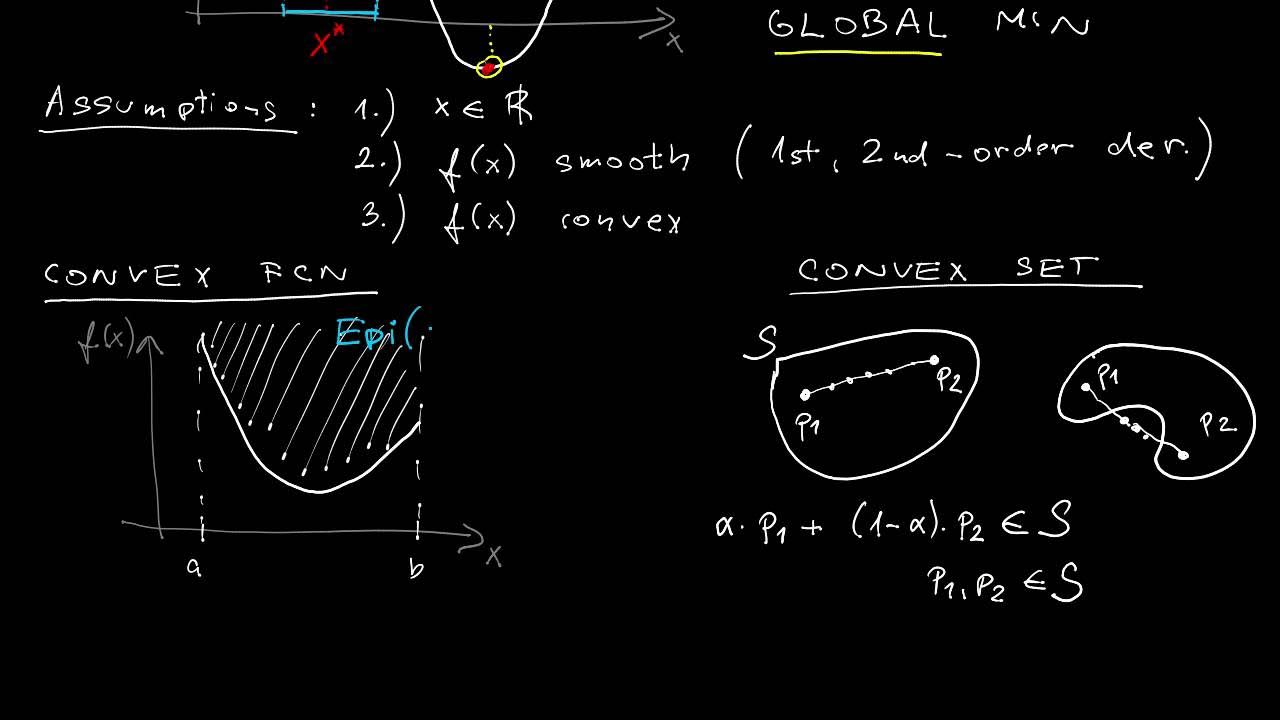 GLOBAL MIN
x
x*
Assumptions : 1.) x ∈ ℝ
2.) f(x) smooth (1st, 2nd-order der.)
3.) f(x) convex
CONVEX FCN
f(x)
Epi(
a
b
x
CONVEX SET
S
P1
P2
P1
P2
α. P1 + (1-α). P2 ∈ S
P1, P2 ∈ S